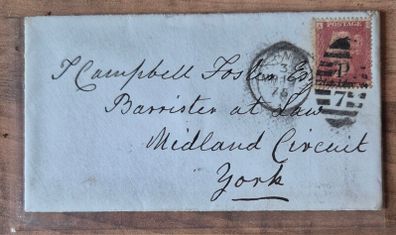 POSTAGE
T Campbell Foster Esq
Barrister at Law
Midland Circuit
York
78
7